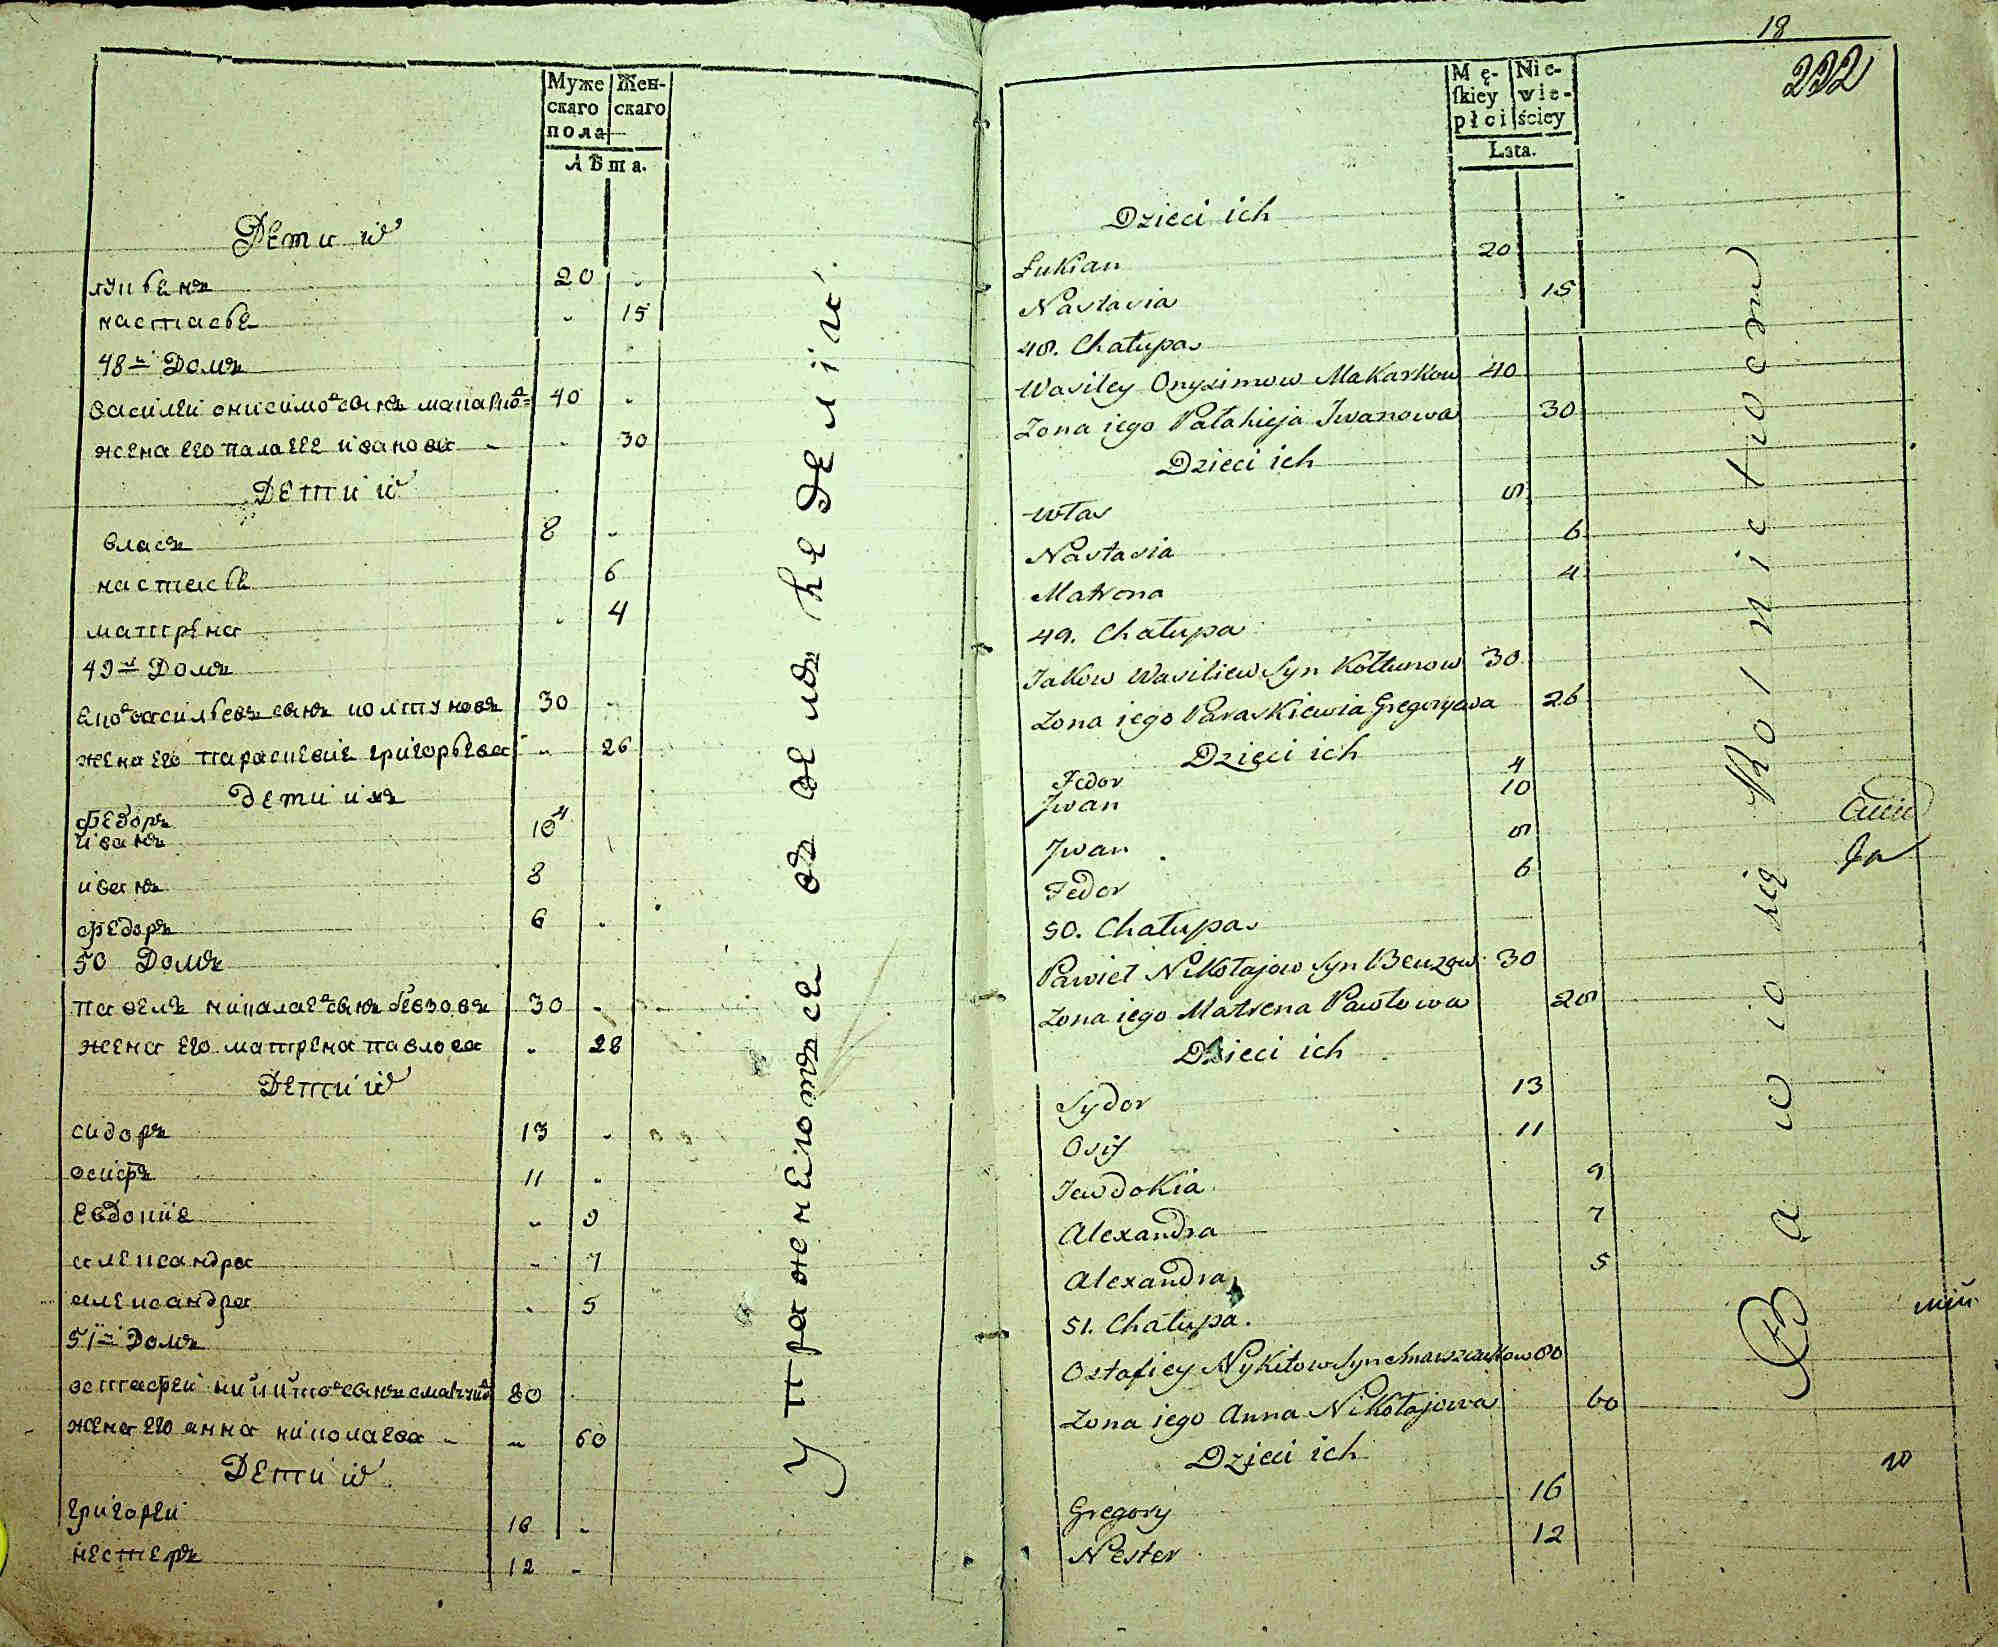 Муже
скаго
пола
Жен-
скаго
Лѣта.
Дети их
лукьенъ 20 -
настасье - 15
48й Домъ
василеи онисимовъ сынъ макарков 40 -
жена его палагее иванова - - 30
Дети их
власъ 8 -
настасье 6
матрена - 4
49й Домъ
яков васильевъ сынъ колтуновъ 30 -
жена его параскевие григорьева - 26
дети ихъ
федоръ 4
иванъ 10
иванъ 8
федоръ 6 -
50 Домъ
павелъ никалаев сынъ бевзовъ 30 -
жена его матрена павлова - 28
Дети их
сидоръ 13 -
осифъ 11 -
евдокие - 9
александра - 7
александра - 5
51й Домъ
остафеи никитов сынъ 80 -
жена его анна николаева - - 60
Дети их
григореи 16 -
нестеръ 12 -
Упраженяютъся въ земъ леделіи
18
222
Mę-
skiey
płci
Nie-
wie-
ściey
Lata.
Dzieci ich
Łukian 20
Nastasia 15
48. Chałupa
Wasiley Onyzimow Makarkow 40
Zona iego Pałahieja Jwanowa 30
Dzieci ich
Własʼ 8
Nastasia 6
Matrona 4
49. Chałupa
Jakow Wasiliew Syn Kołtunow 30
Zona iego Paraskiewia Gregoryowa 26
Dzieci ich
Fedor 4
Jwan 10
Jwan 8
Fedor 6
50. Chałupa
Pawieł Nikołajow Syn Bewzow 30
Zona iego Matrena Pawłowa 28
Dzieci ich
Sydor 13
Osif 11
Jewdokia 9
Alexandra 7
Alexandra 5
51. Chałupa.
Ostafiey Nykitow Syn 80
Zona iego Anna Nikołajowa 60
Dzieci ich
Gregory 16
Nester 12
Bawio się Rolnictwem